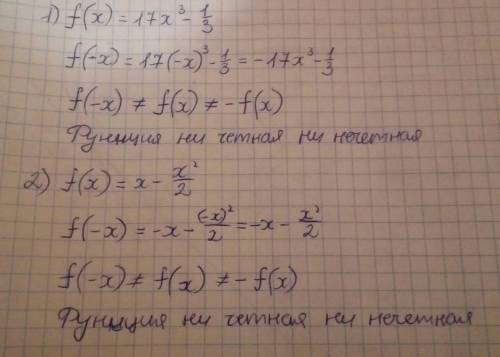 1) f(x) = 17x³ - 1/3
f(-x) = 17(-x)³ - 1/3 = -17x³ - 1/3
f(-x) ≠ f(x) ≠ -f(x)
Функция ни четная ни нечетная
2) f(x) = x - x²/2
f(-x) = -x - (-x)²/2 = -x - x²/2
f(-x) ≠ f(x) ≠ -f(x)
Функция ни четная ни нечетная